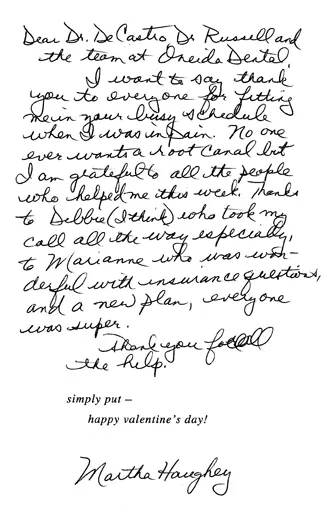 Dear Dr. DeCastro, Dr. Russell and
the team at Oneida Dental,
I want to say thank
you to everyone for fitting
me in your busy schedule
when I was in pain. No one
ever wants a root canal but
I am grateful to all the people
who helped me this week. Thanks
to Debbie (I think) who took my
call all the way especially,
to Marianne who was won-
derful with insurance questions,
and a new plan, everyone
was super.
Thank you for all
the help.
simply put –
happy valentine's day!
Martha Haughey